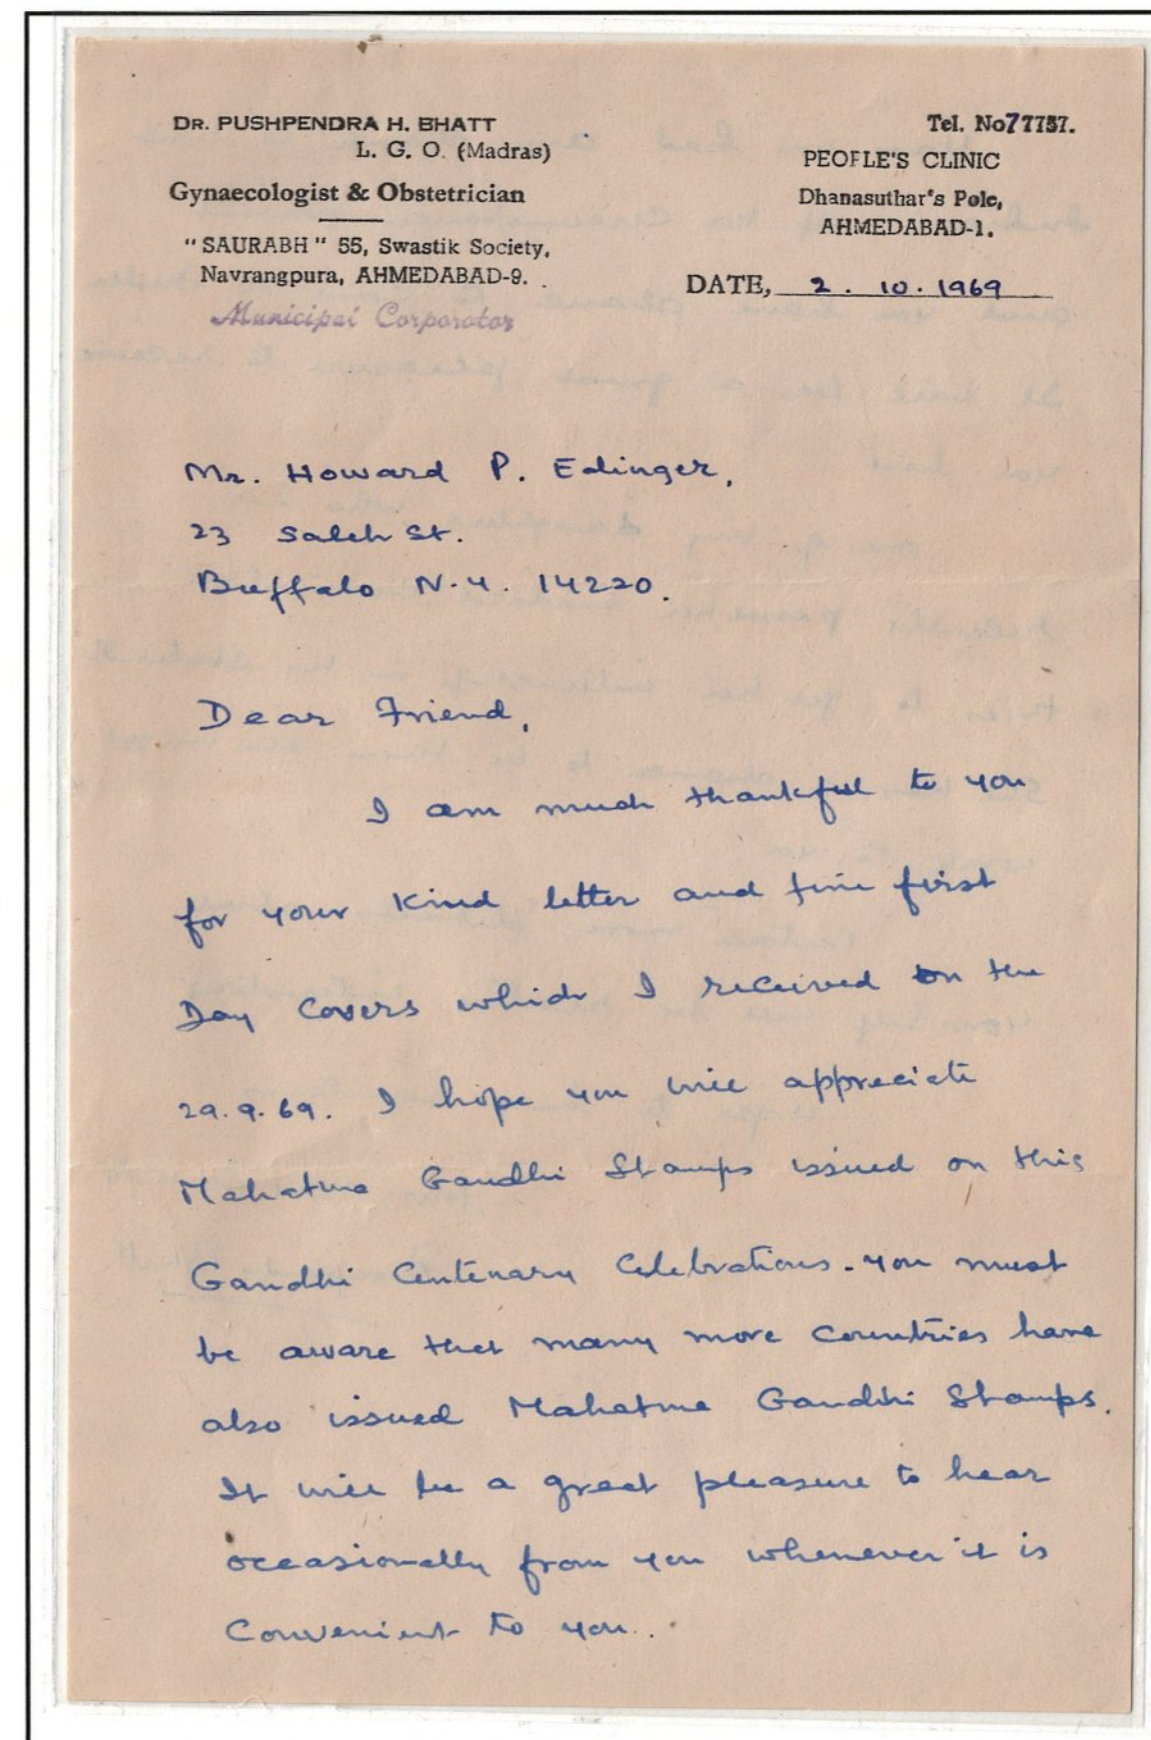 DR. PUSHPENDRA H. BHATT
L. G. O. (Madras)
Gynaecologist & Obstetrician
"SAURABH" 55, Swastik Society,
Navrangpura, AHMEDABAD-9.
Municipal Corporator
Tel. No 77757.
PEOPLE'S CLINIC
Dhanasuthar's Pole,
AHMEDABAD-1.
DATE, 2. 10. 1969
Mr. Howard P. Edinger,
23 St.
Buffalo N.Y. 14220.
Dear Friend,
I am much thankful to you
for your kind letter and fine first
Day Covers which I received on the
29.9.69. I hope you will appreciate
Mahatma Gandhi Stamps issued on this
Gandhi Centenary Celebrations. You must
be aware that many more countries have
also issued Mahatma Gandhi Stamps.
It will be a great pleasure to hear
occasionally from you whenever it is
Convenient to you.